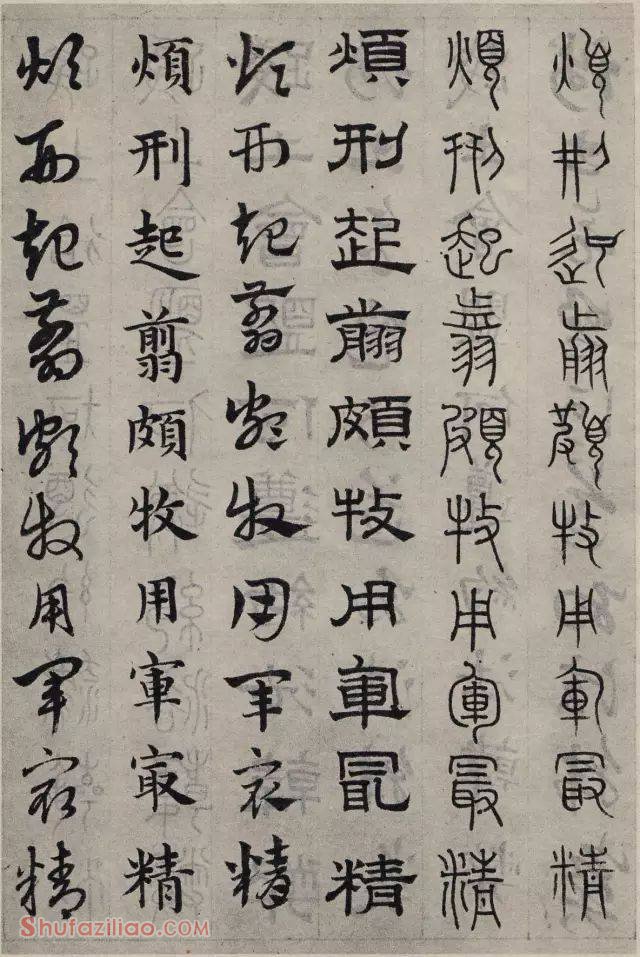 煩刑起翦頗牧用軍最精
煩刑起翦頗牧用軍最精
煩刑起翦頗牧用軍最精
煩刑起翦頗牧用軍最精
煩刑起翦頗牧用軍最精
煩刑起翦頗牧用軍最精
Shufaziliao.com